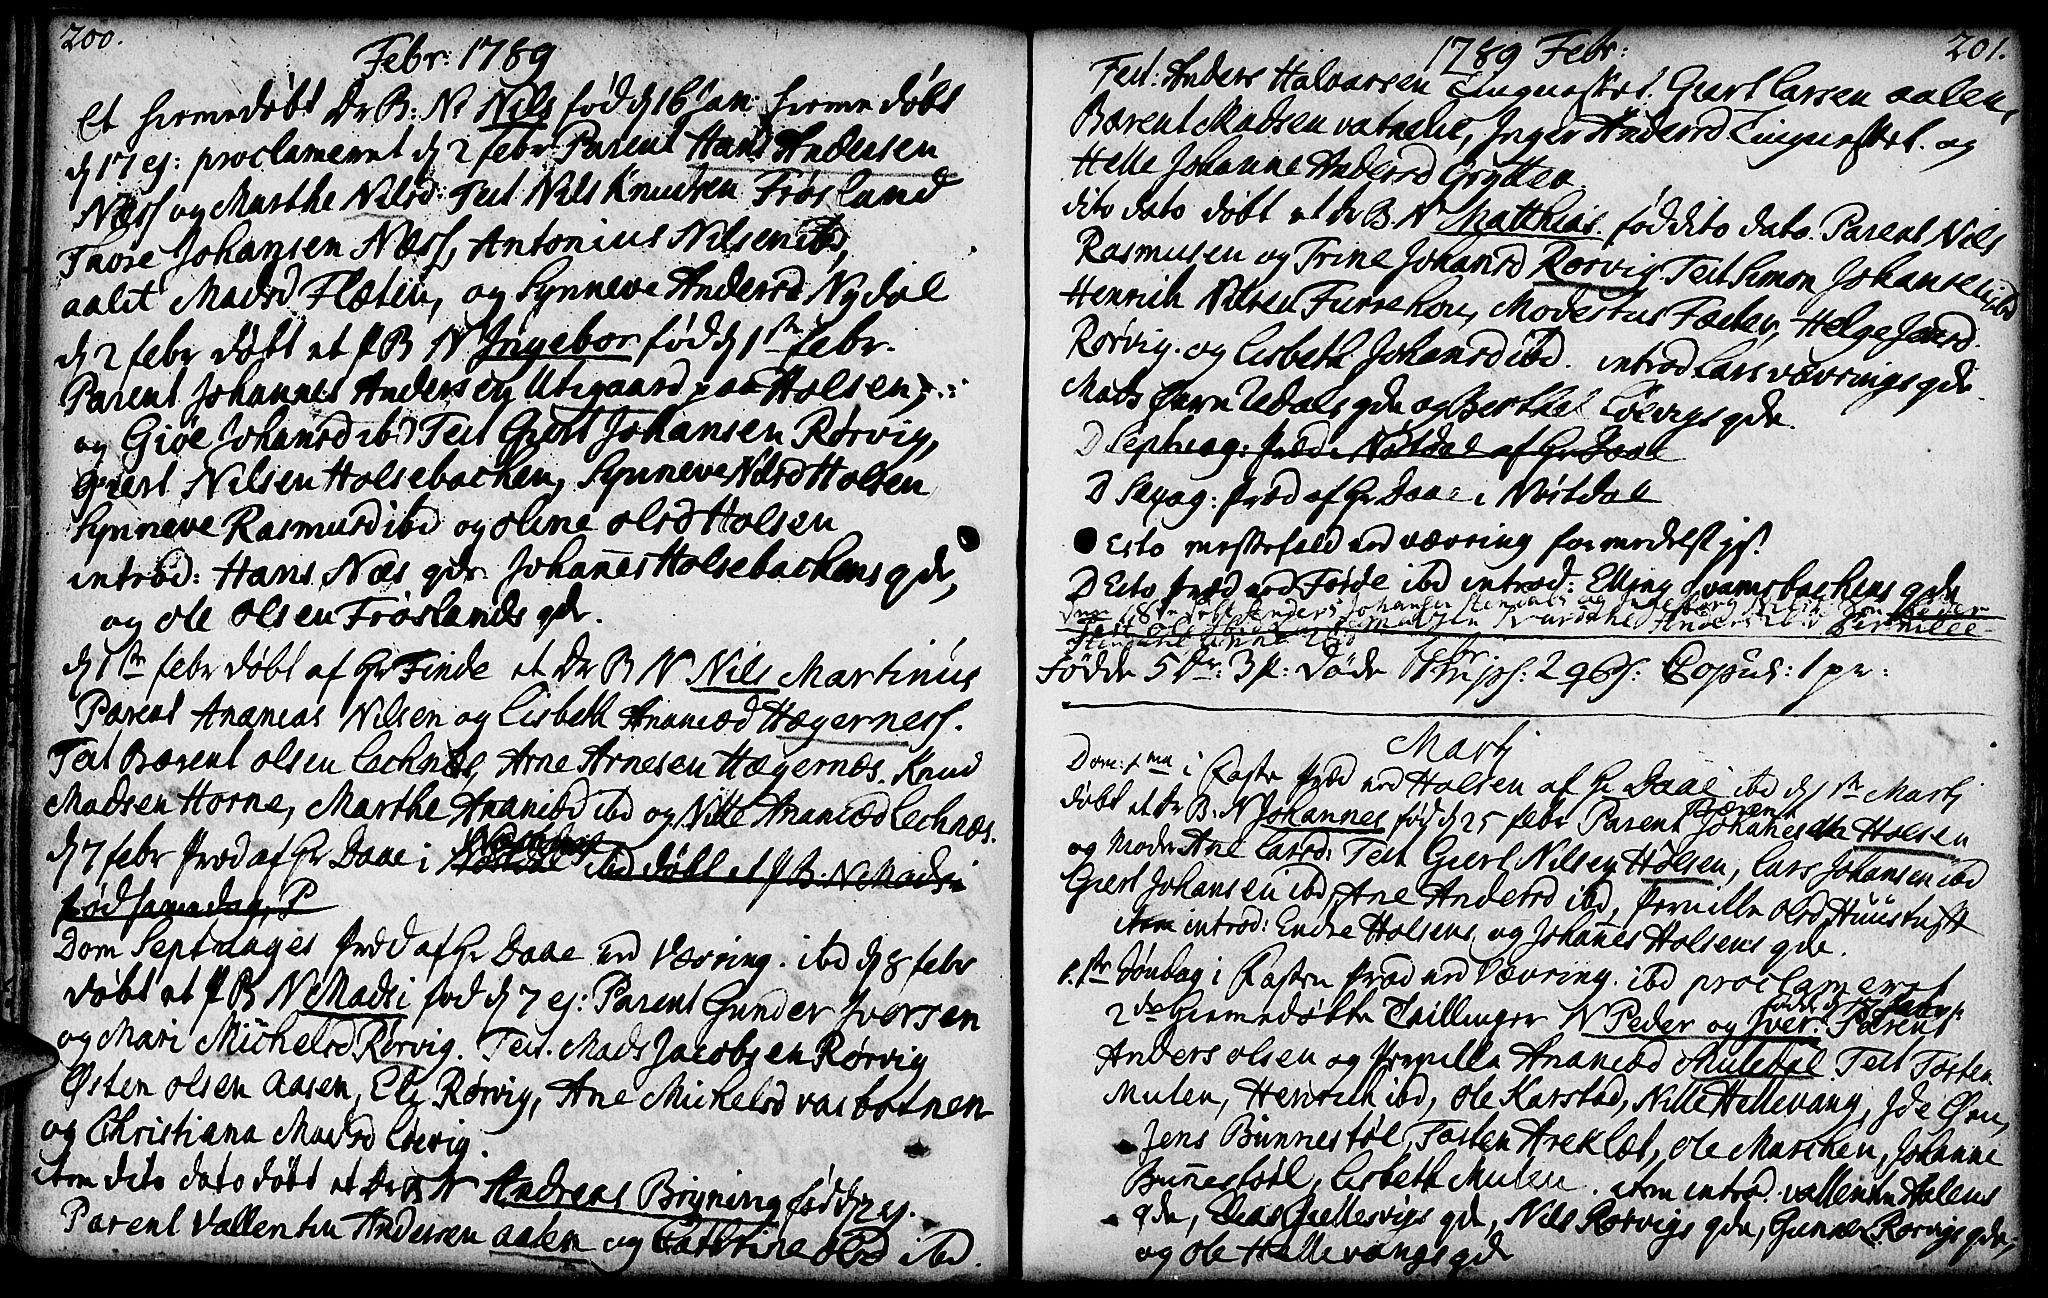 200.
Febr: 1789
Et hiemedøbt Dr B: N Nils fød d 16 Jan: hieme døbt
d 17 ej: proclameret d 2 febr Parent Hans Andersen
Næss og Marthe Nilsd: Test Nils Knudsen Frøsland
Thore Johansen Næss, Antonius Nilsen ibd,
aalit Madsd Flæten, og Synneve Andersd Nydal
d 2 febr døbt et P B N Ingebor fød d 1ste febr.
Parent Johannes Andersen Utigaard paa Holsen,
og Giøe Johansd ibd Test Giert Johansen Rørvig,
Giert Nilsen Holsebachen, Synneve Nilsd Holsen
Synneve Rasmusd ibd og oline olsd Holsen
introd: Hans Næs qde. Johannes Holsebachens qde,
og ole olsen Frøslands qde.
d 1ste febr døbt af Hr Finde et Dr B N Nils Martinus
Parent Ananias Nilsen og Lisbeth Ananiæd Hægerness.
Test Bærent olsen Lechnæs, Arne Arnesen Hægernæs. Knud
Madsen Horne, Marthe Ananiæd ibd og Nille Ananiæd Lechnæs.
d 7 febr Præd af Hr Daae i ibd døbt et P B: N Madsi
fød samme dag, P
Dom Septuages Præd af Hr Daae ved Vævring. ibd d 8 febr
døbt et P B N Madsi fød d 7 ej: Parent Gunder Iversen
og Mari Michelsd Rørvig. Test. Mads Jacobsen Rørvig
Østen olsen aasen, Eli Rørvig, Ane Michelsd vasbotnen
og Christiana Madsd Løevig.
item dito dato døbt et Dr B N Andreas Bryning fød d 2 ej.
Parent Vallentin Andersen aalen og Cathrine olsd ibd.
201.
1789 Febr:
Test: Anders Halvarsen Giert Larsen aalen,
Bærent Madsen vatnelie, Inger Andersd og
Helle Johanne Andersd Grytten
dito dato døbt et dr B N Matthias. fød dito dato. Parent Nils
Rasmusen og Trine Johansd Rørvig Test Simon Johansen ibd
Henrich Nilsen Furrehou, Modestus Fæster, Helge
Rørvig. og Lisbeth Johansd ibd. introd Lars vævrings qde
Mads Øvre Uedals qde og Berthel Løevigs qde.
D Septuag: Præd i Nøstdal af Hr Daae
D Sexag: Præd af Hr Daae i Nøstdall
Esto messefald ved vævring formedelst
D Esto Præd ved Førde ibd introd: Elling qvamsbachens qde
Fødde 5 Dr: 3 P: døde 2 Copul: 1 pr:
Martj
Dom: 1ma i Faste Præd ved Holsen af Hr Daae ibd d 1ste Martj
døbt et dr B: N Johannes fød d 25 febr Parent Johannes Holsen
og Moder Ane Larsd: Test Giert Nilsen Holsen, Lars Johansen ibd
Giert Johansen ibd, Ane Andersd ibd, Pernille olsd Huustuft
item introd: Endre Holsens og Johannes Holsens qde.
1ste Søndag i Fasten Præd ved Vævring. ibd proclameret
2de hiemedøbte Tvillinger N Peder og Iver. fødde d 17 febr. Parent
Anders olsen og Pernille Ananiæd Muledal Test Tosten
Mulen, Henrich ibd, ole Karstad, Nille Hellevang, Ide Øren,
Jens Bunnestøl, Tosten Areklet, ole Marchen, Johanne
Bunnestøl, Lisbeth Mulen. item introd. vallentin Halens
qde, Elias Giellesvigs qde, Nils Rørvigs qde, Gunner Rørvigs qde,
og ole Hellevangs qde